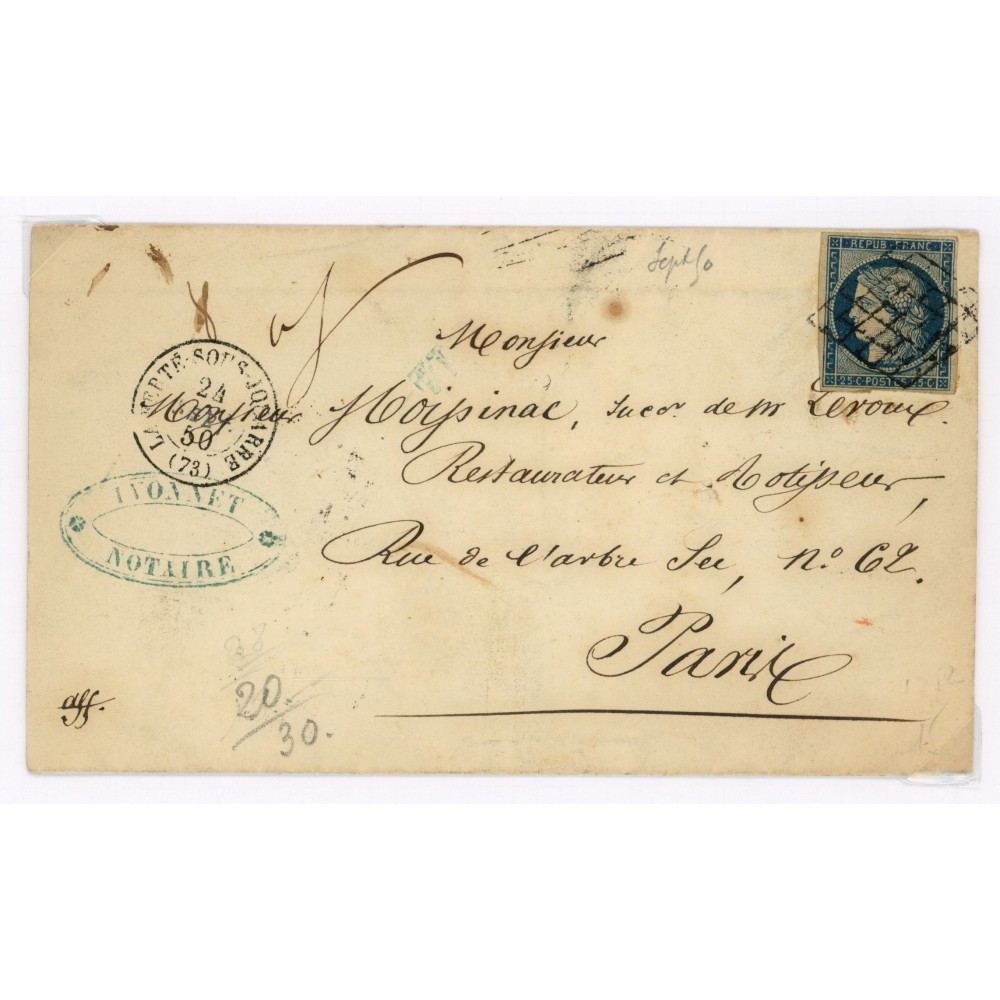 Sept 50
REPUB·FRANC
25 C·POSTE·25 C
LA FERTÉ-SOUS-JOUARRE
24
50
(73)
Monsieur
Monsieur Moissinac, Succr. de Mr Leroux.
Restaurateur et Rotisseur,
Rue de l'arbre Sec, No. 62.
Paris
IVONNET
NOTAIRE
aff.
38
20.
30.